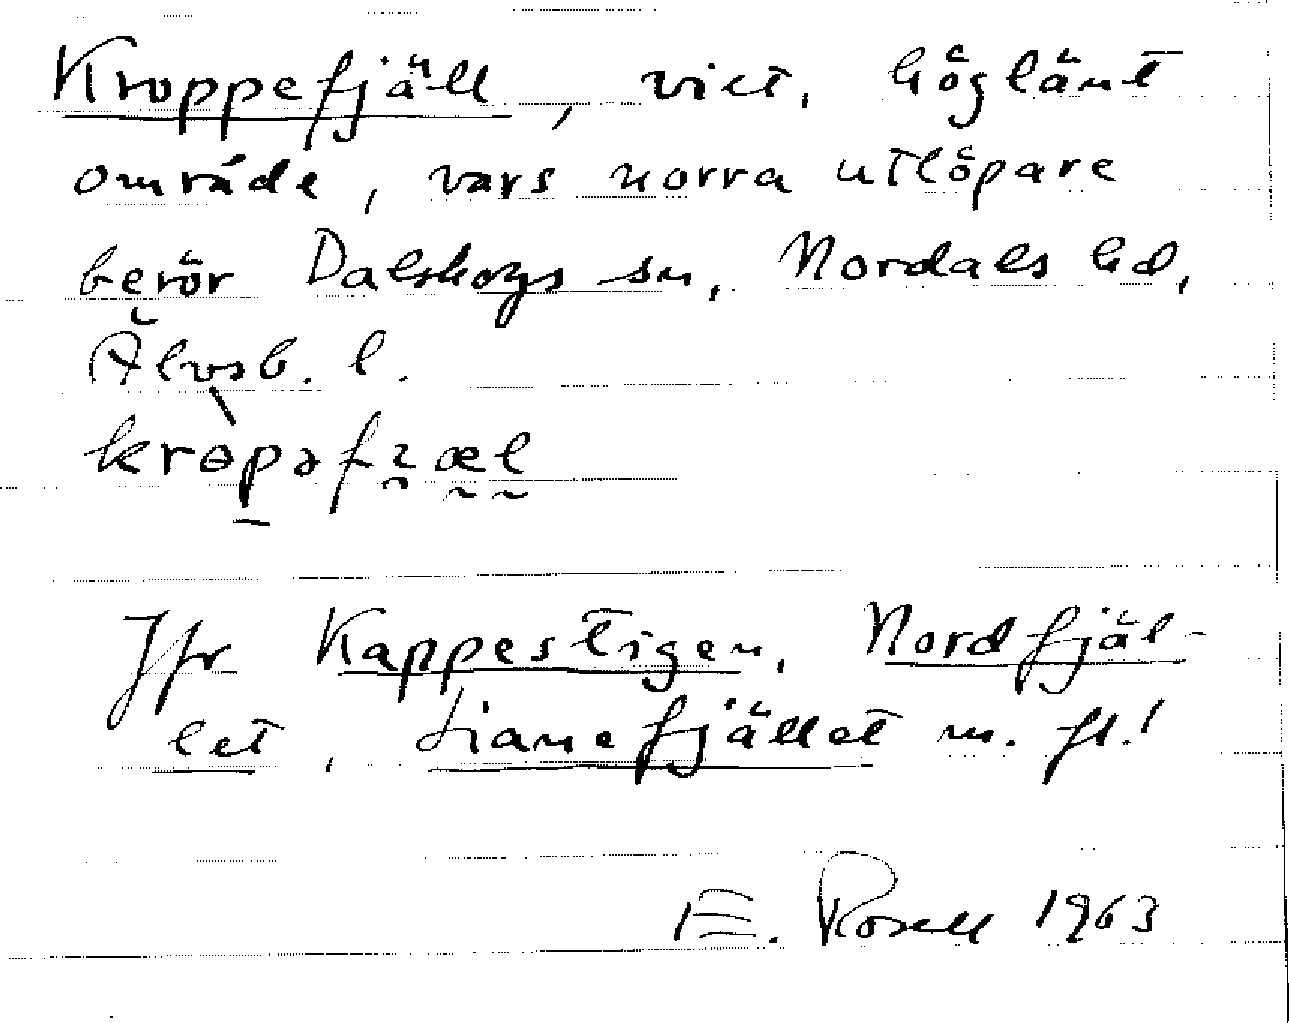 Kroppefjäll, vict, höglänt
område, vars norra utlöpare
berör Dalskogs sn, Nordals hd,
Älvsb. l.
Jfr Kappestigen, Nordfjäl-
let, Lianefjället m. fl.!
E. Rosell 1963